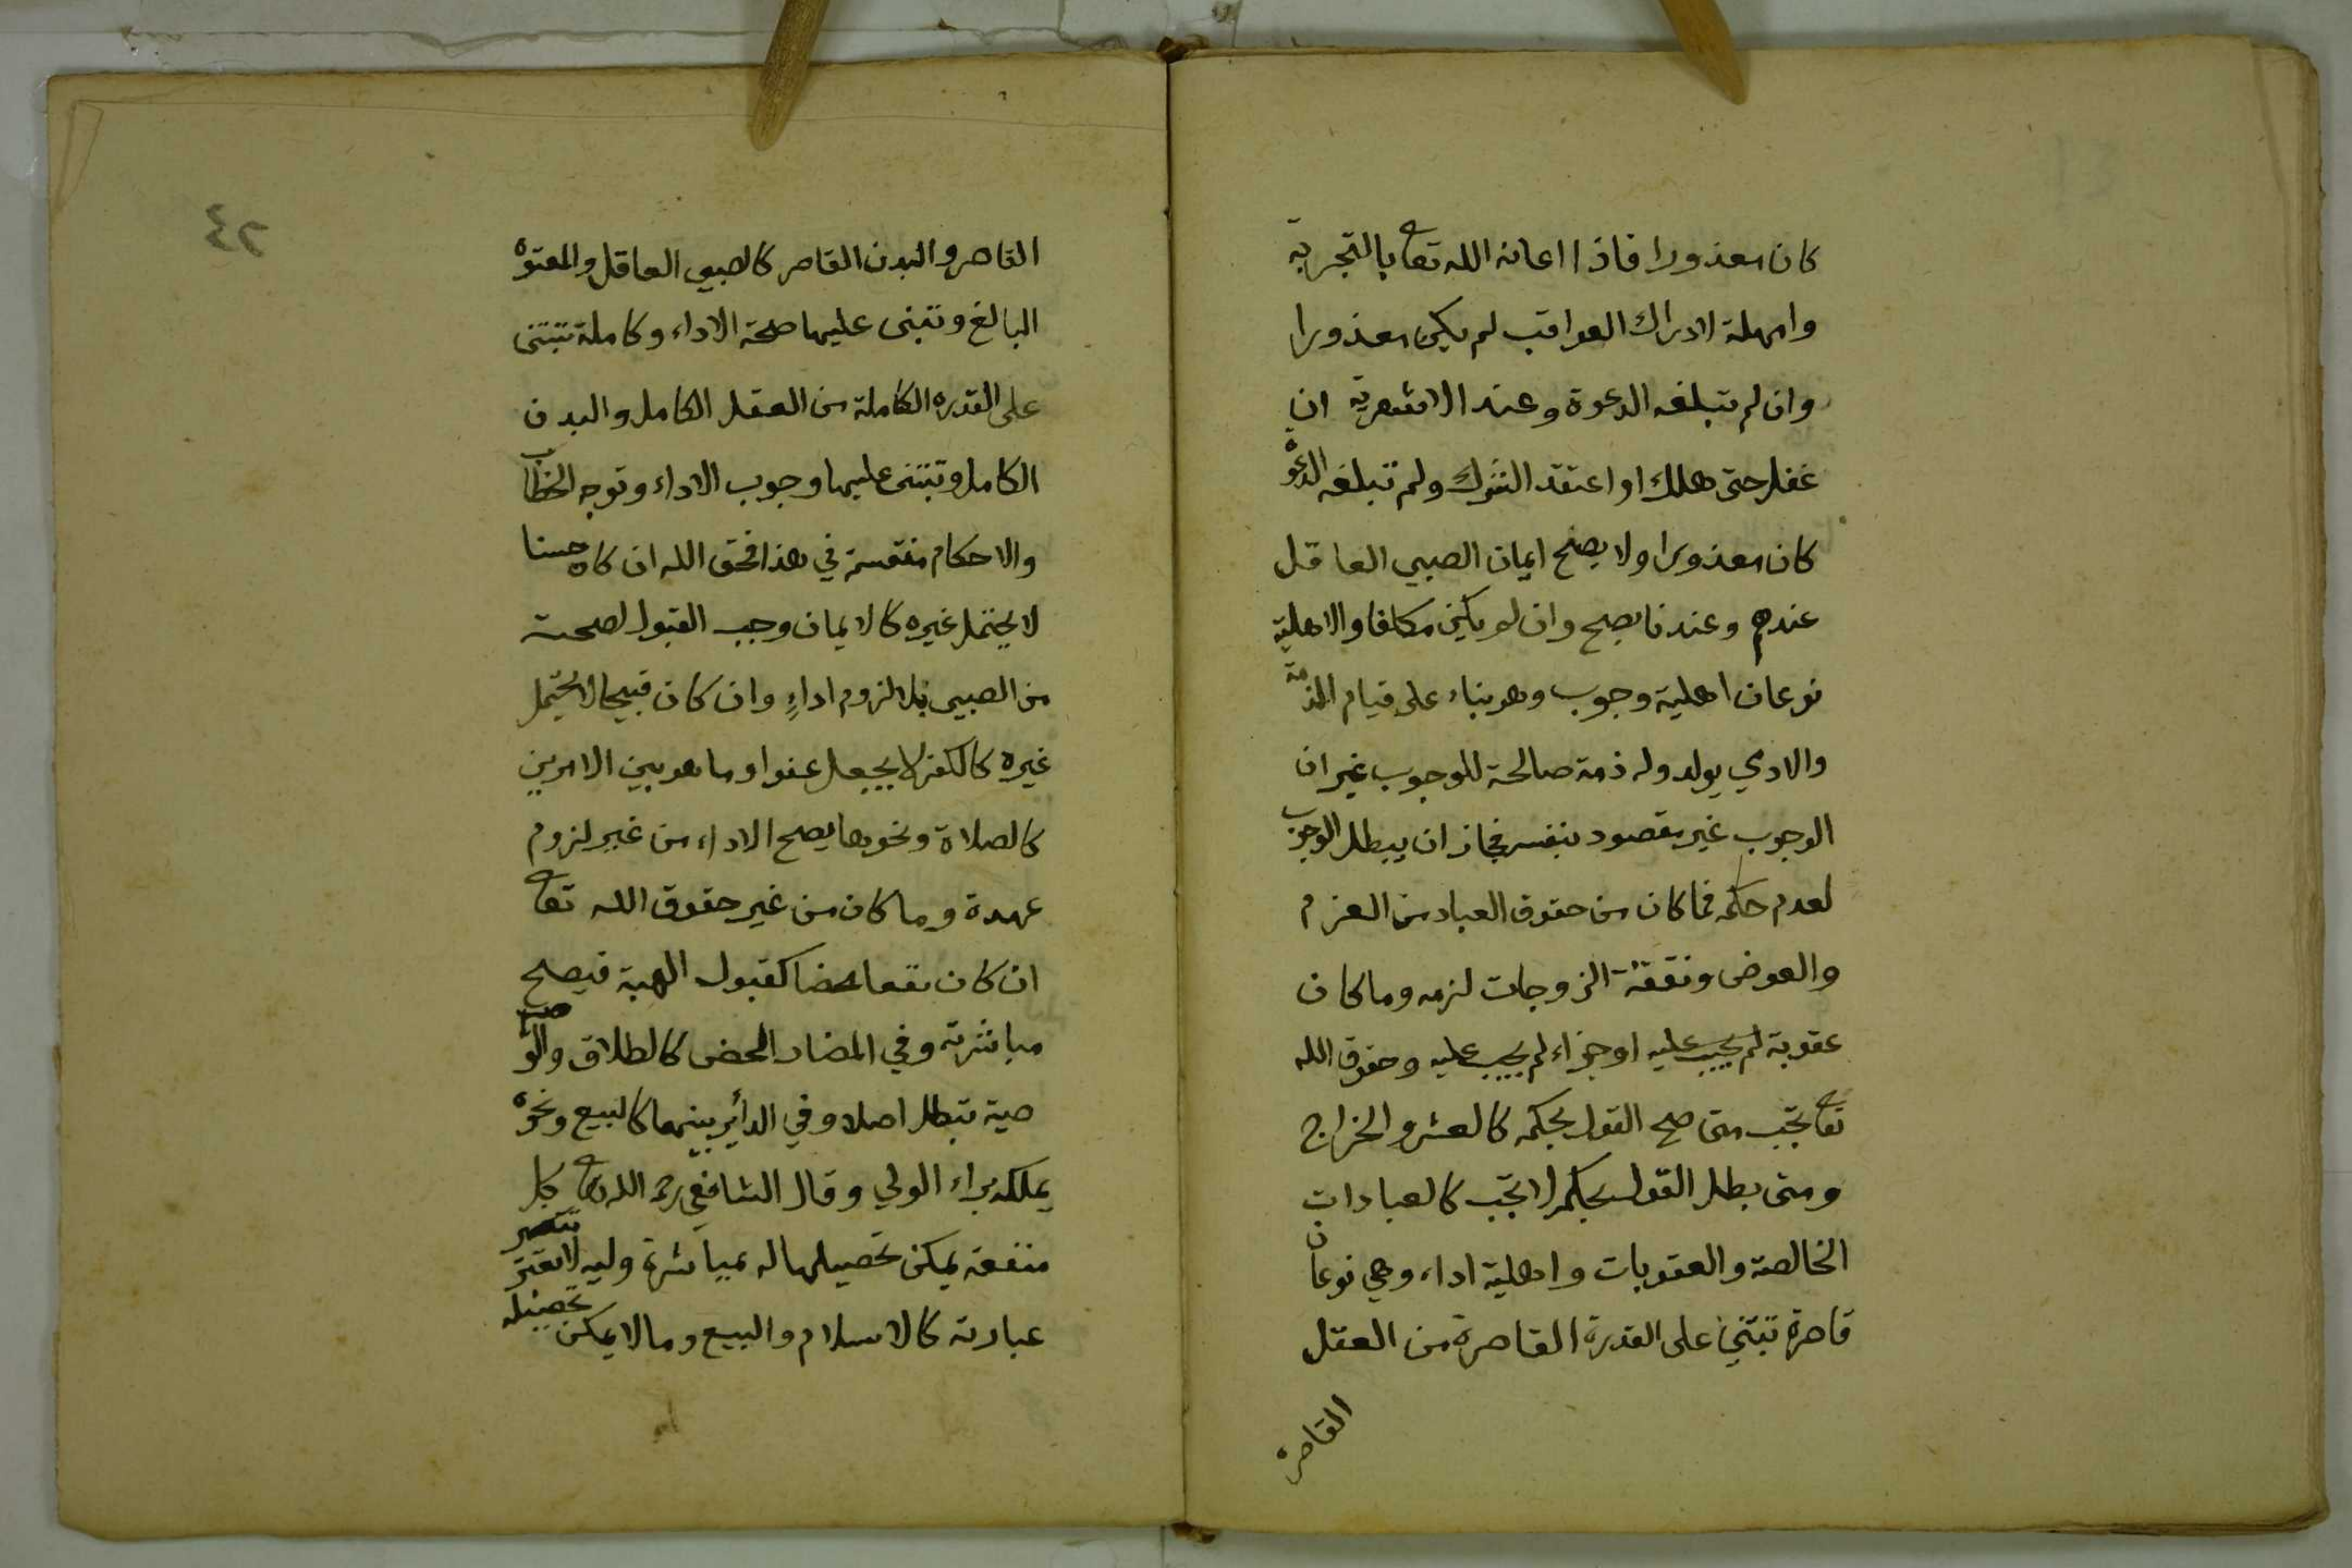 كان معذورا فاذا اعانه الله تعا بالتجربة
وامهله لادراك العواقب لم يكن معذورا
وان لم تبلغه الدعوة وعند الاشعرية ان
غفل حتى هلك او اعتقد الشرك ولم تبلغه الدعوة
كان معذورا ولا يصح ايمان الصبي العاقل
عندهم وعندنا يصح وان لم يكن مكلفا والاهلية
نوعان اهلية وجوب وهو بناء على قيام الذمة
والادمي يولد وله ذمة صالحة للوجوب غير ان
الوجوب غير مقصود بنفسه فجاز ان يبطل الوجوب
لعدم حكمه فما كان من حقوق العباد من الغرم
والعوض ونفقة الزوجات لزمه وما كان
عقوبة لم يجب عليه او جزاء لم يجب عليه وحقوق الله
تعا تجب متى صح القول بحكمه كالعشر والخراج
ومتى بطل القول بحكمه لا تجب كالعبادات
الخالصة والعقوبات واهلية اداء وهي نوعان
قاصرة تبتني على القدرة القاصرة من العقل
القاصر
٢٤
القاصر والبدن القاصر كالصبي العاقل والمعتوه
البالغ وتبنى عليها صحة الاداء وكاملة تبتنى
على القدره الكاملة من العقل الكامل والبدن
الكامل وتبتنى عليها وجوب الاداء وتوجه الخطاب
والاحكام منقسمة في هذا فحق الله ان كان حسنا
لا يحتمل غيره كالايمان وجب القبول لصحته
من الصبي بلا لزوم اداءٍ وان كان قبيحا لا يحتمل
غيره كالكفر لا يجعل عفوا وما هو بين الامرين
كالصلاة ونحوها يصح الاداء من غير لزوم
عهدة وما كان من غير حقوق الله تعا
ان كان نفعا محضا كقبول الهبة فيصح
مباشرته وفي المضار المحض كالطلاق والو
صية تبطل اصلا وفي الدائر بينهما كالبيع ونحوه
يملكه براء الولي وقال الشافعي رحمه الله تعا كل
منفعة يمكن تحصيلها له بمباشرة وليه لا تعتبر
عبارته كالاسلام والبيع وما لا يمكن تحصيله